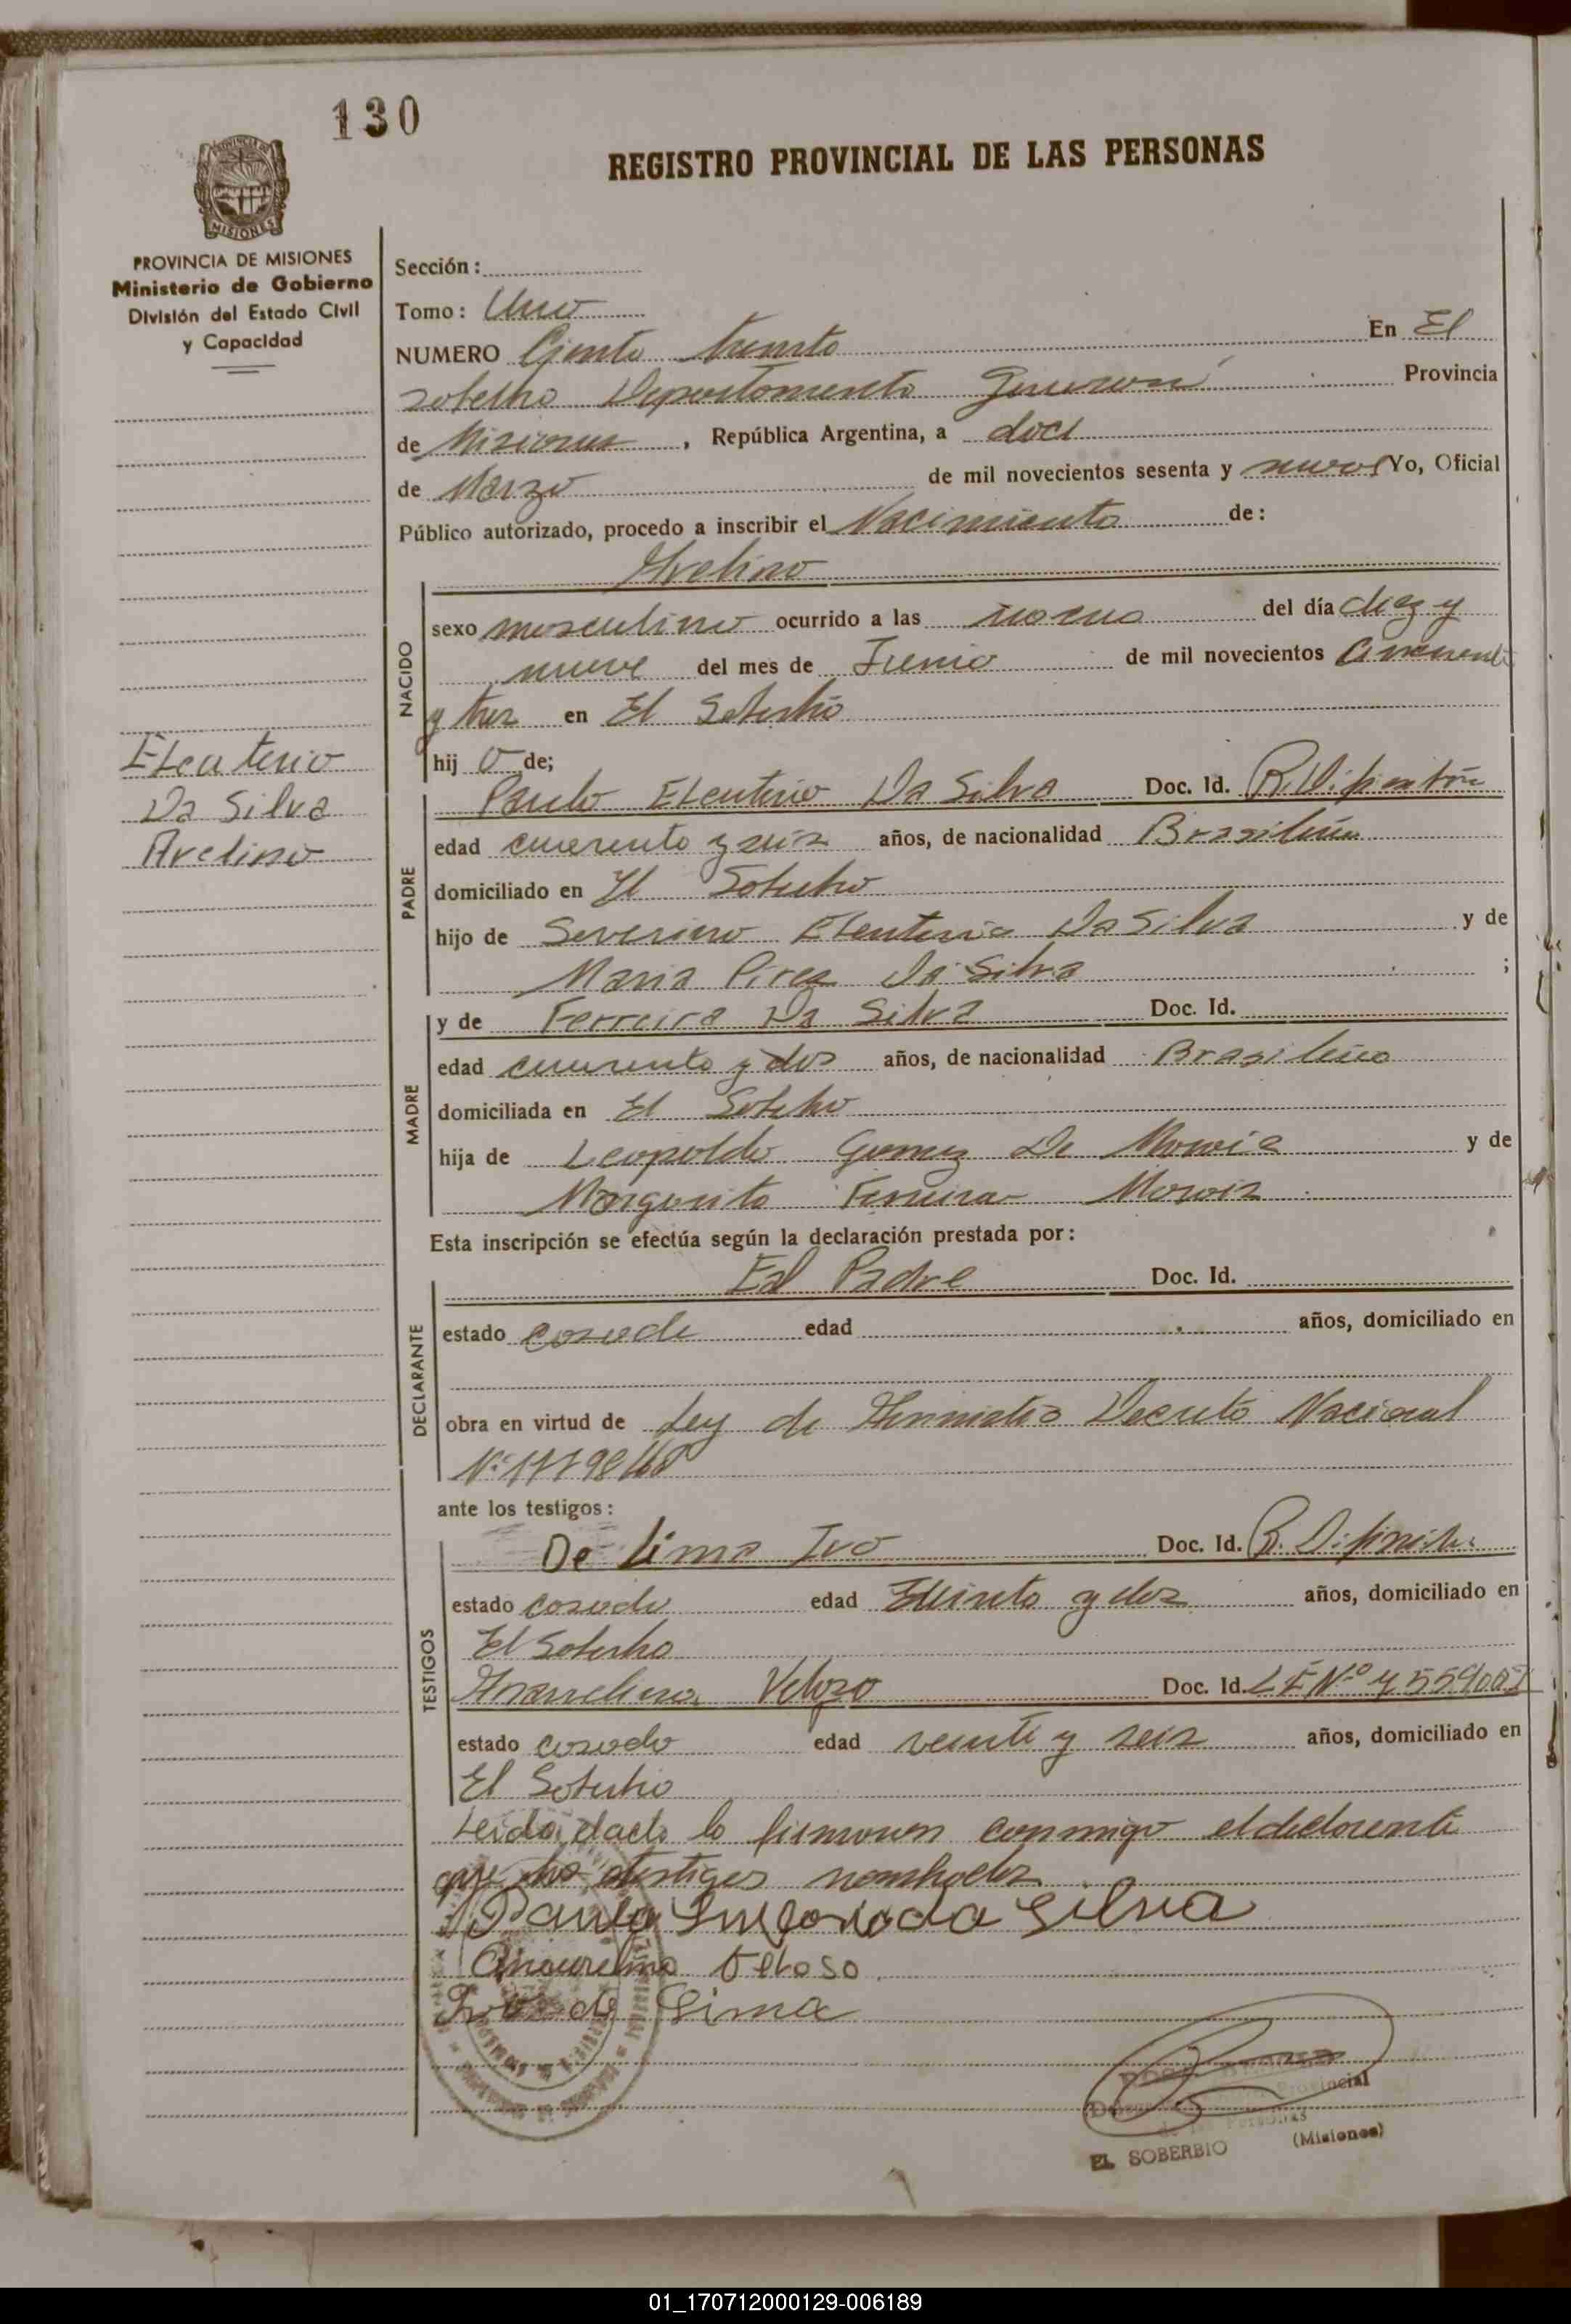 130
REGISTRO PROVINCIAL DE LAS PERSONAS
PROVINCIA DE MISIONES
Ministerio de Gobierno
División del Estado Civil
y Capacidad
Sección:
Tomo: Uno
NUMERO Ciento treinta En El
Soberbio Departamento Guaraní Provincia
de Misiones, República Argentina, a doce
de Marzo de mil novecientos sesenta y nueve Yo, Oficial
Público autorizado, procedo a inscribir el Nacimiento de:
Avelino
NACIDO
sexo masculino ocurrido a las del día diez y
nueve del mes de Junio de mil novecientos cincuenta
y tres en El Soberbio
hijo de;
Eleuterio
Da Silva
Avelino
PADRE
Paulo Eleuterio Da Silva Doc. Id.
edad cuarenta y seis años, de nacionalidad Brasileña
domiciliado en El Soberbio
hijo de Severino Eleuterio Da Silva y de
Maria Pires Da Silva ;
MADRE
y de Ferreira Da Silva Doc. Id.
edad cuarenta y dos años, de nacionalidad Brasileña
domiciliada en El Soberbio
hija de Leopoldo Gomez De y de
Margarita Ferreira
Esta inscripción se efectúa según la declaración prestada por:
DECLARANTE
El Padre Doc. Id.
estado casado edad años, domiciliado en
obra en virtud de Ley de Amnistia Decreto Nacional
Nº 17798/68
ante los testigos:
TESTIGOS
De Lima Ivo Doc. Id.
estado casado edad Treinta y dos años, domiciliado en
El Soberbio
Veloso Doc. Id. LE Nº
estado casado edad veinte y seis años, domiciliado en
El Soberbio
Leida el acta la firmaron conmigo el declarante
y los testigos nombrados
da Silva
Veloso
Ivo de Lima
Provincial
de las Personas
EL SOBERBIO (Misiones)
01_170712000129-006189